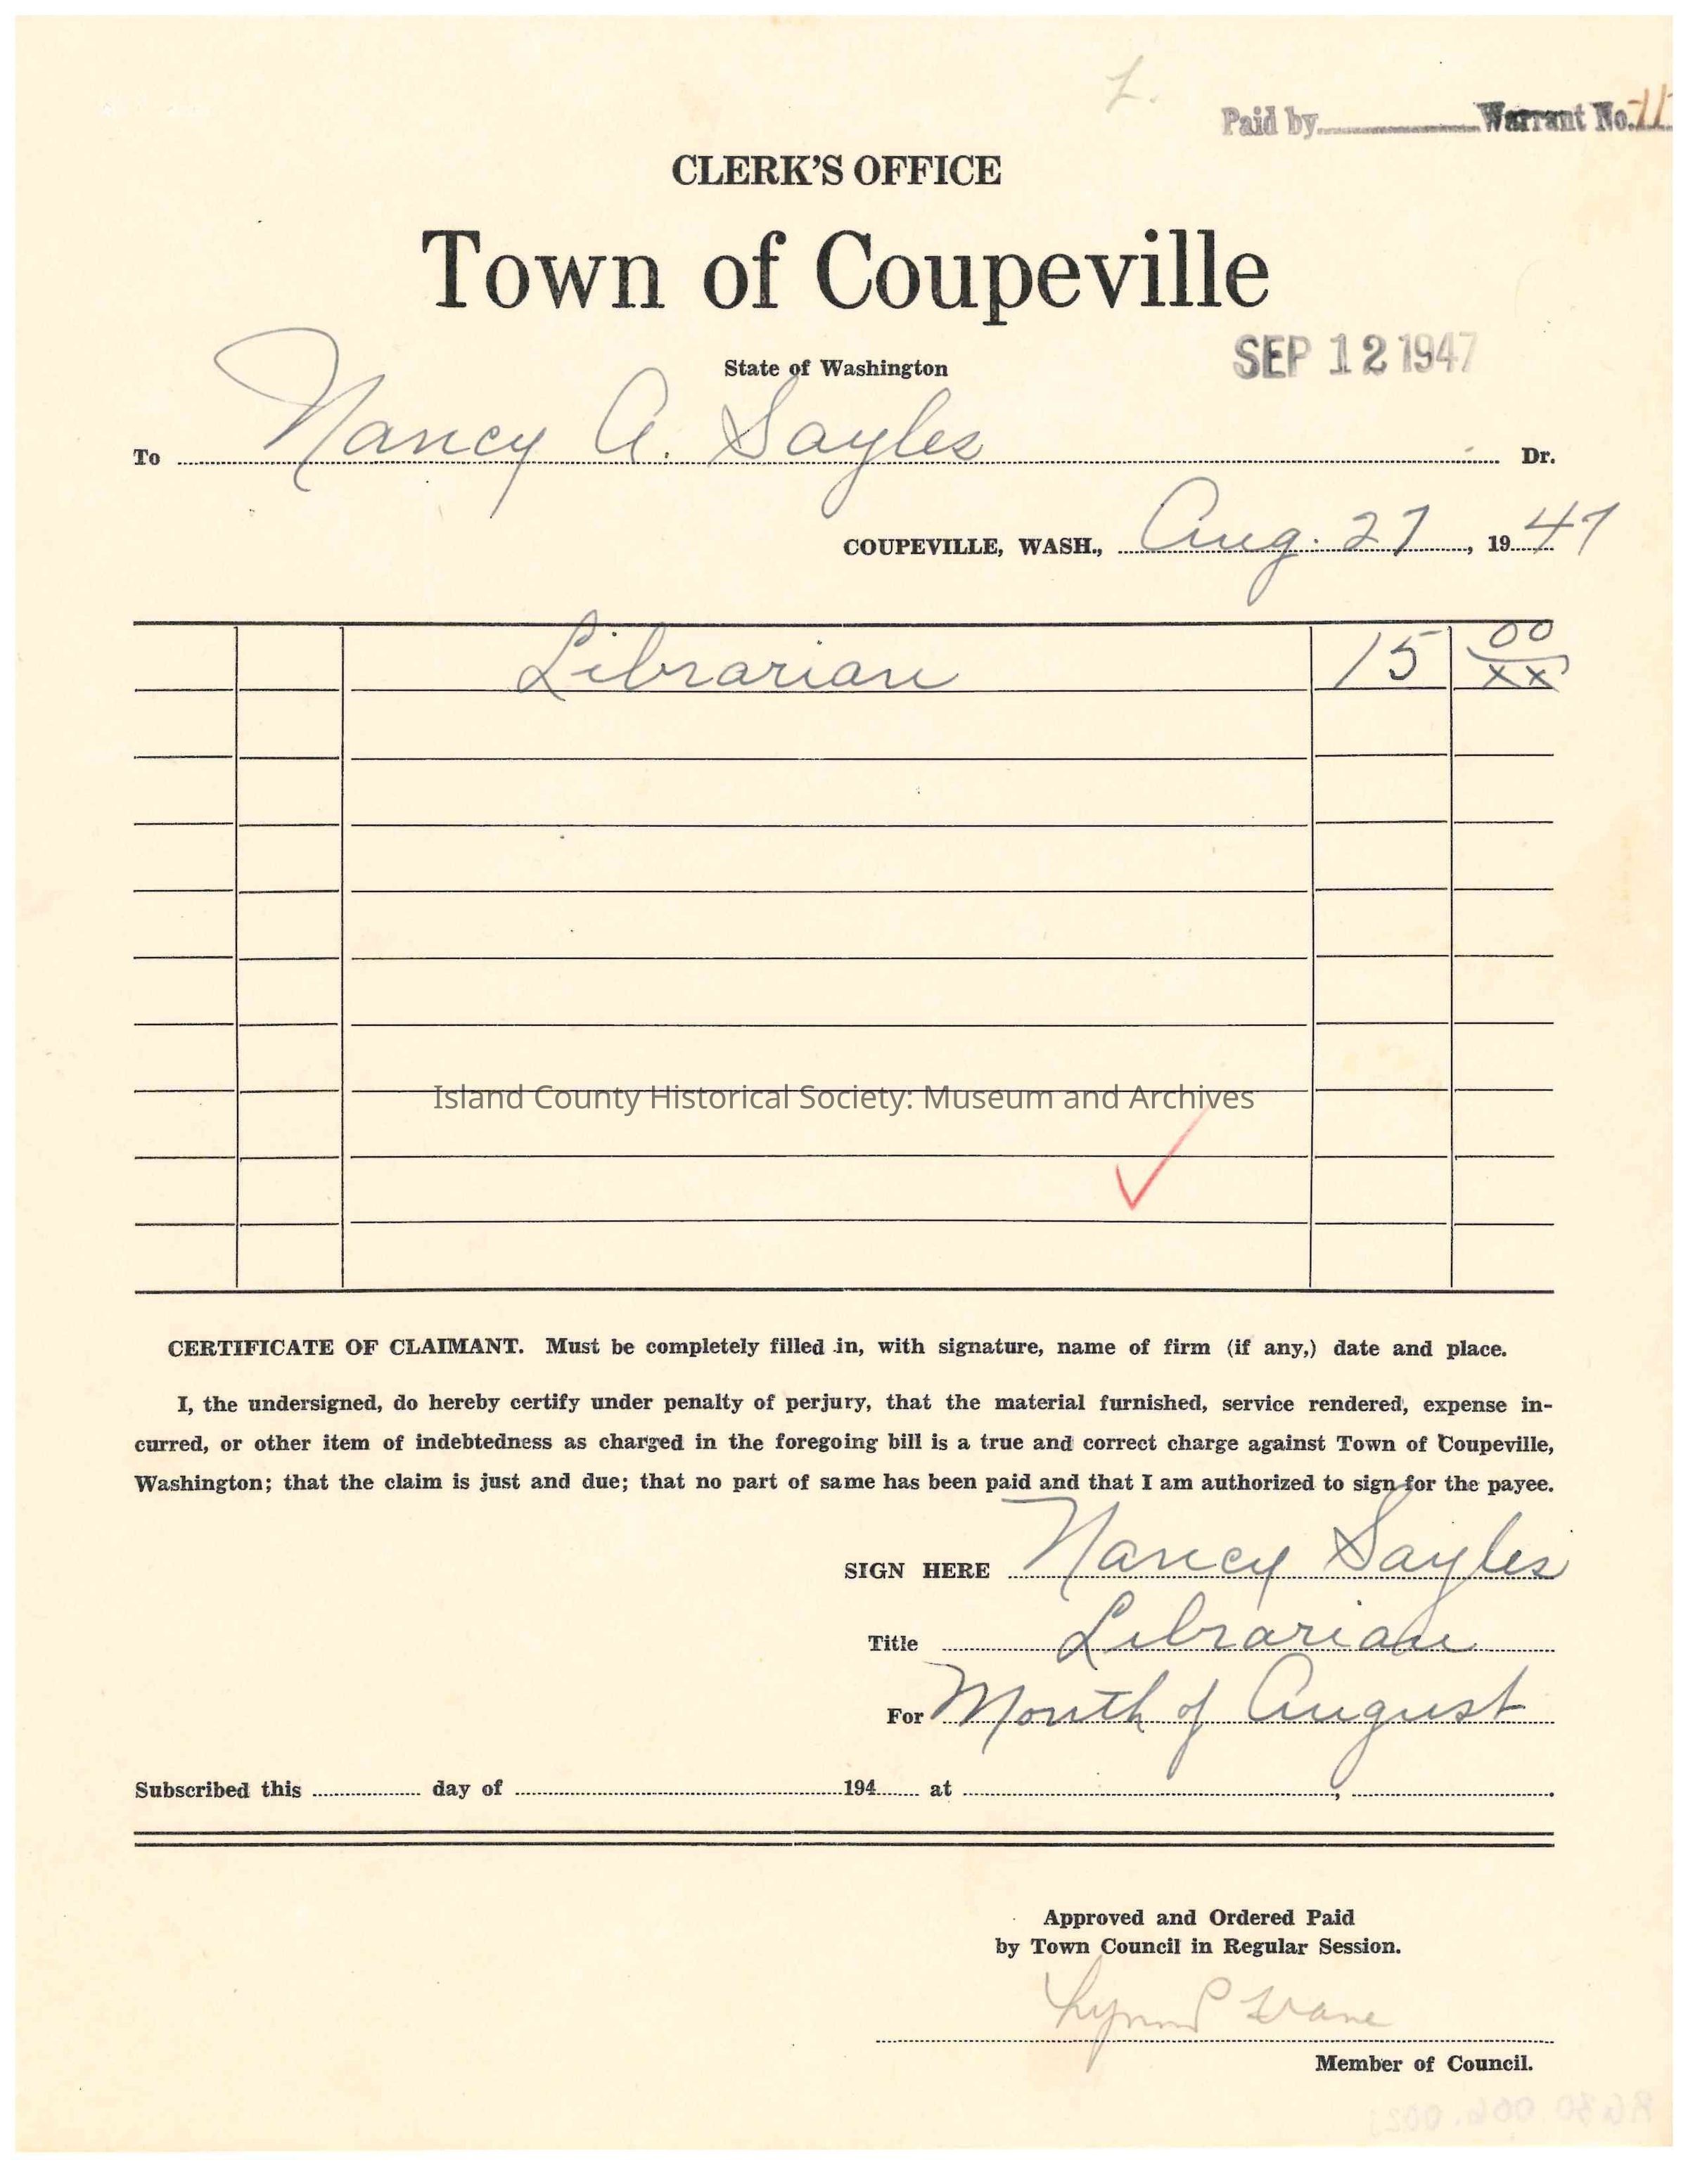 L.
Paid by Warrant No. 71
CLERK'S OFFICE
Town of Coupeville
State of Washington
SEP 12 1947
To Nancy A. Sayles Dr.
COUPEVILLE, WASH., Aug. 27, 1947
Librarian 15 00/xx
Island County Historical Society: Museum and Archives
CERTIFICATE OF CLAIMANT. Must be completely filled in, with signature, name of firm (if any,) date and place.
I, the undersigned, do hereby certify under penalty of perjury, that the material furnished, service rendered, expense in-
curred, or other item of indebtedness as charged in the foregoing bill is a true and correct charge against Town of Coupeville,
Washington; that the claim is just and due; that no part of same has been paid and that I am authorized to sign for the payee.
SIGN HERE Nancy Sayles
Title Librarian
For Month of August
Subscribed this day of 194 at , .
Approved and Ordered Paid
by Town Council in Regular Session.
Member of Council.